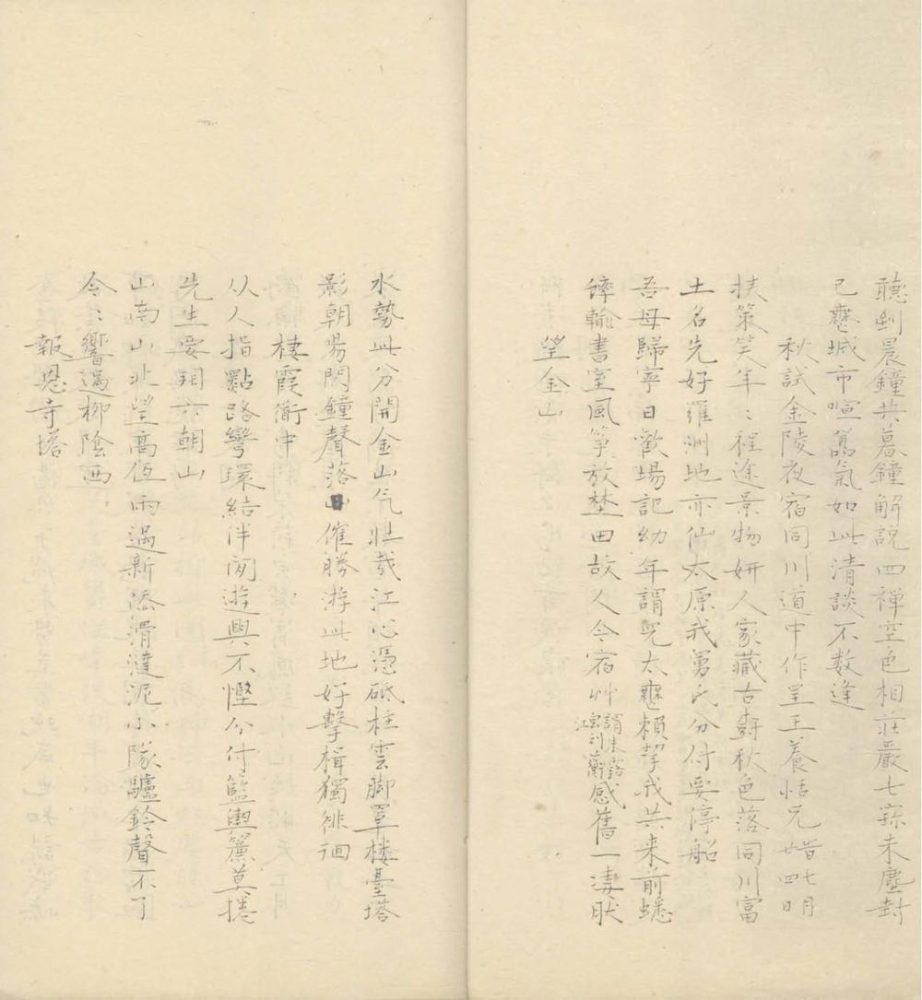 聽到晨鐘共暮鐘解說四禪空色相莊嚴七寶未塵封
已應城市喧囂氣如此清談不數逢
秋試金陵夜宿同川道中作呈王養恬兄 時七月四日
挾策笑年〻程途景物妍人家藏古樹秋色落同川富
土名先好羅洲地亦仙太原我舅氏分付要停船
吾母歸寧日歡場記幼年謂兒太憨賴挈我共来前蟋
蟀輸書室風箏放埜田故人今宿艸感舊一淒然
望金山
水勢此分開金山气壯哉江心憑砥柱雲脚罩樓臺塔
影朝陽閃鐘聲落山催勝游此地好擊楫獨徘徊
棲霞衝中
从人指點路彎環結伴閒遊興不慳分付籃輿簾莫捲
先生要相六朝山
山南山北望高低雨過新添滑澾泥小隊驢鈴聲不了
令〻響過柳陰西
報恩寺塔